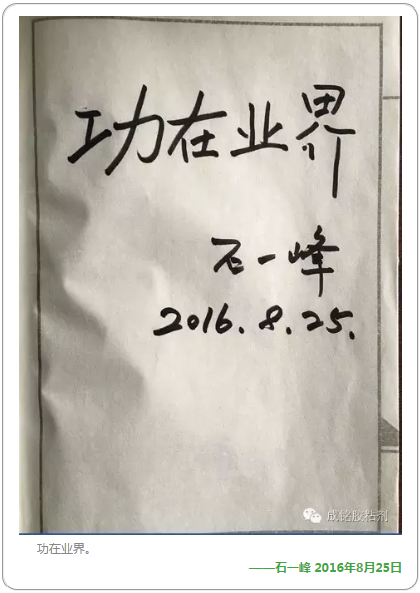 功在业界
石一峰
2016.8.25.
成铭胶粘剂
功在业界。
——石一峰 2016年8月25日